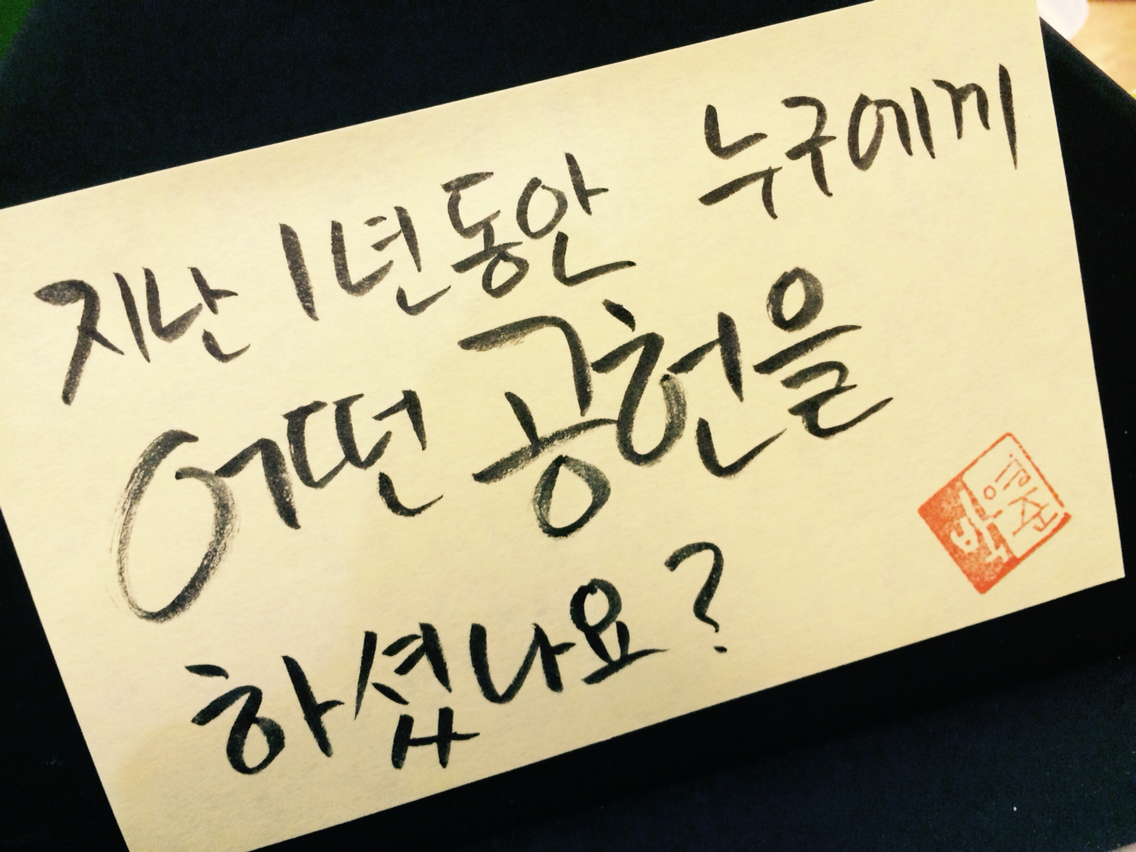 지난 1년동안 누구에게
어떤 공헌을
하셨나요?